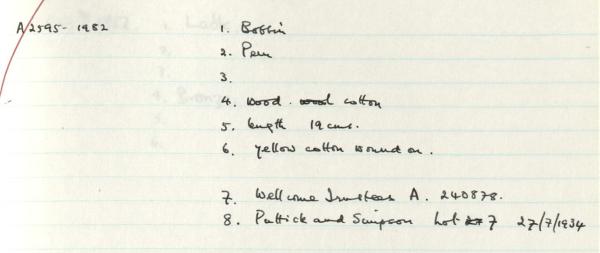 A2595-1982 1. Bobbin
2. Peru
3.
4. wood. wood cotton
5. length 19cms.
6. yellow cotton wound on.
7. Wellcome Trustees A. 240878.
8. Puttick and Simpson Lot 7 27/7/1934